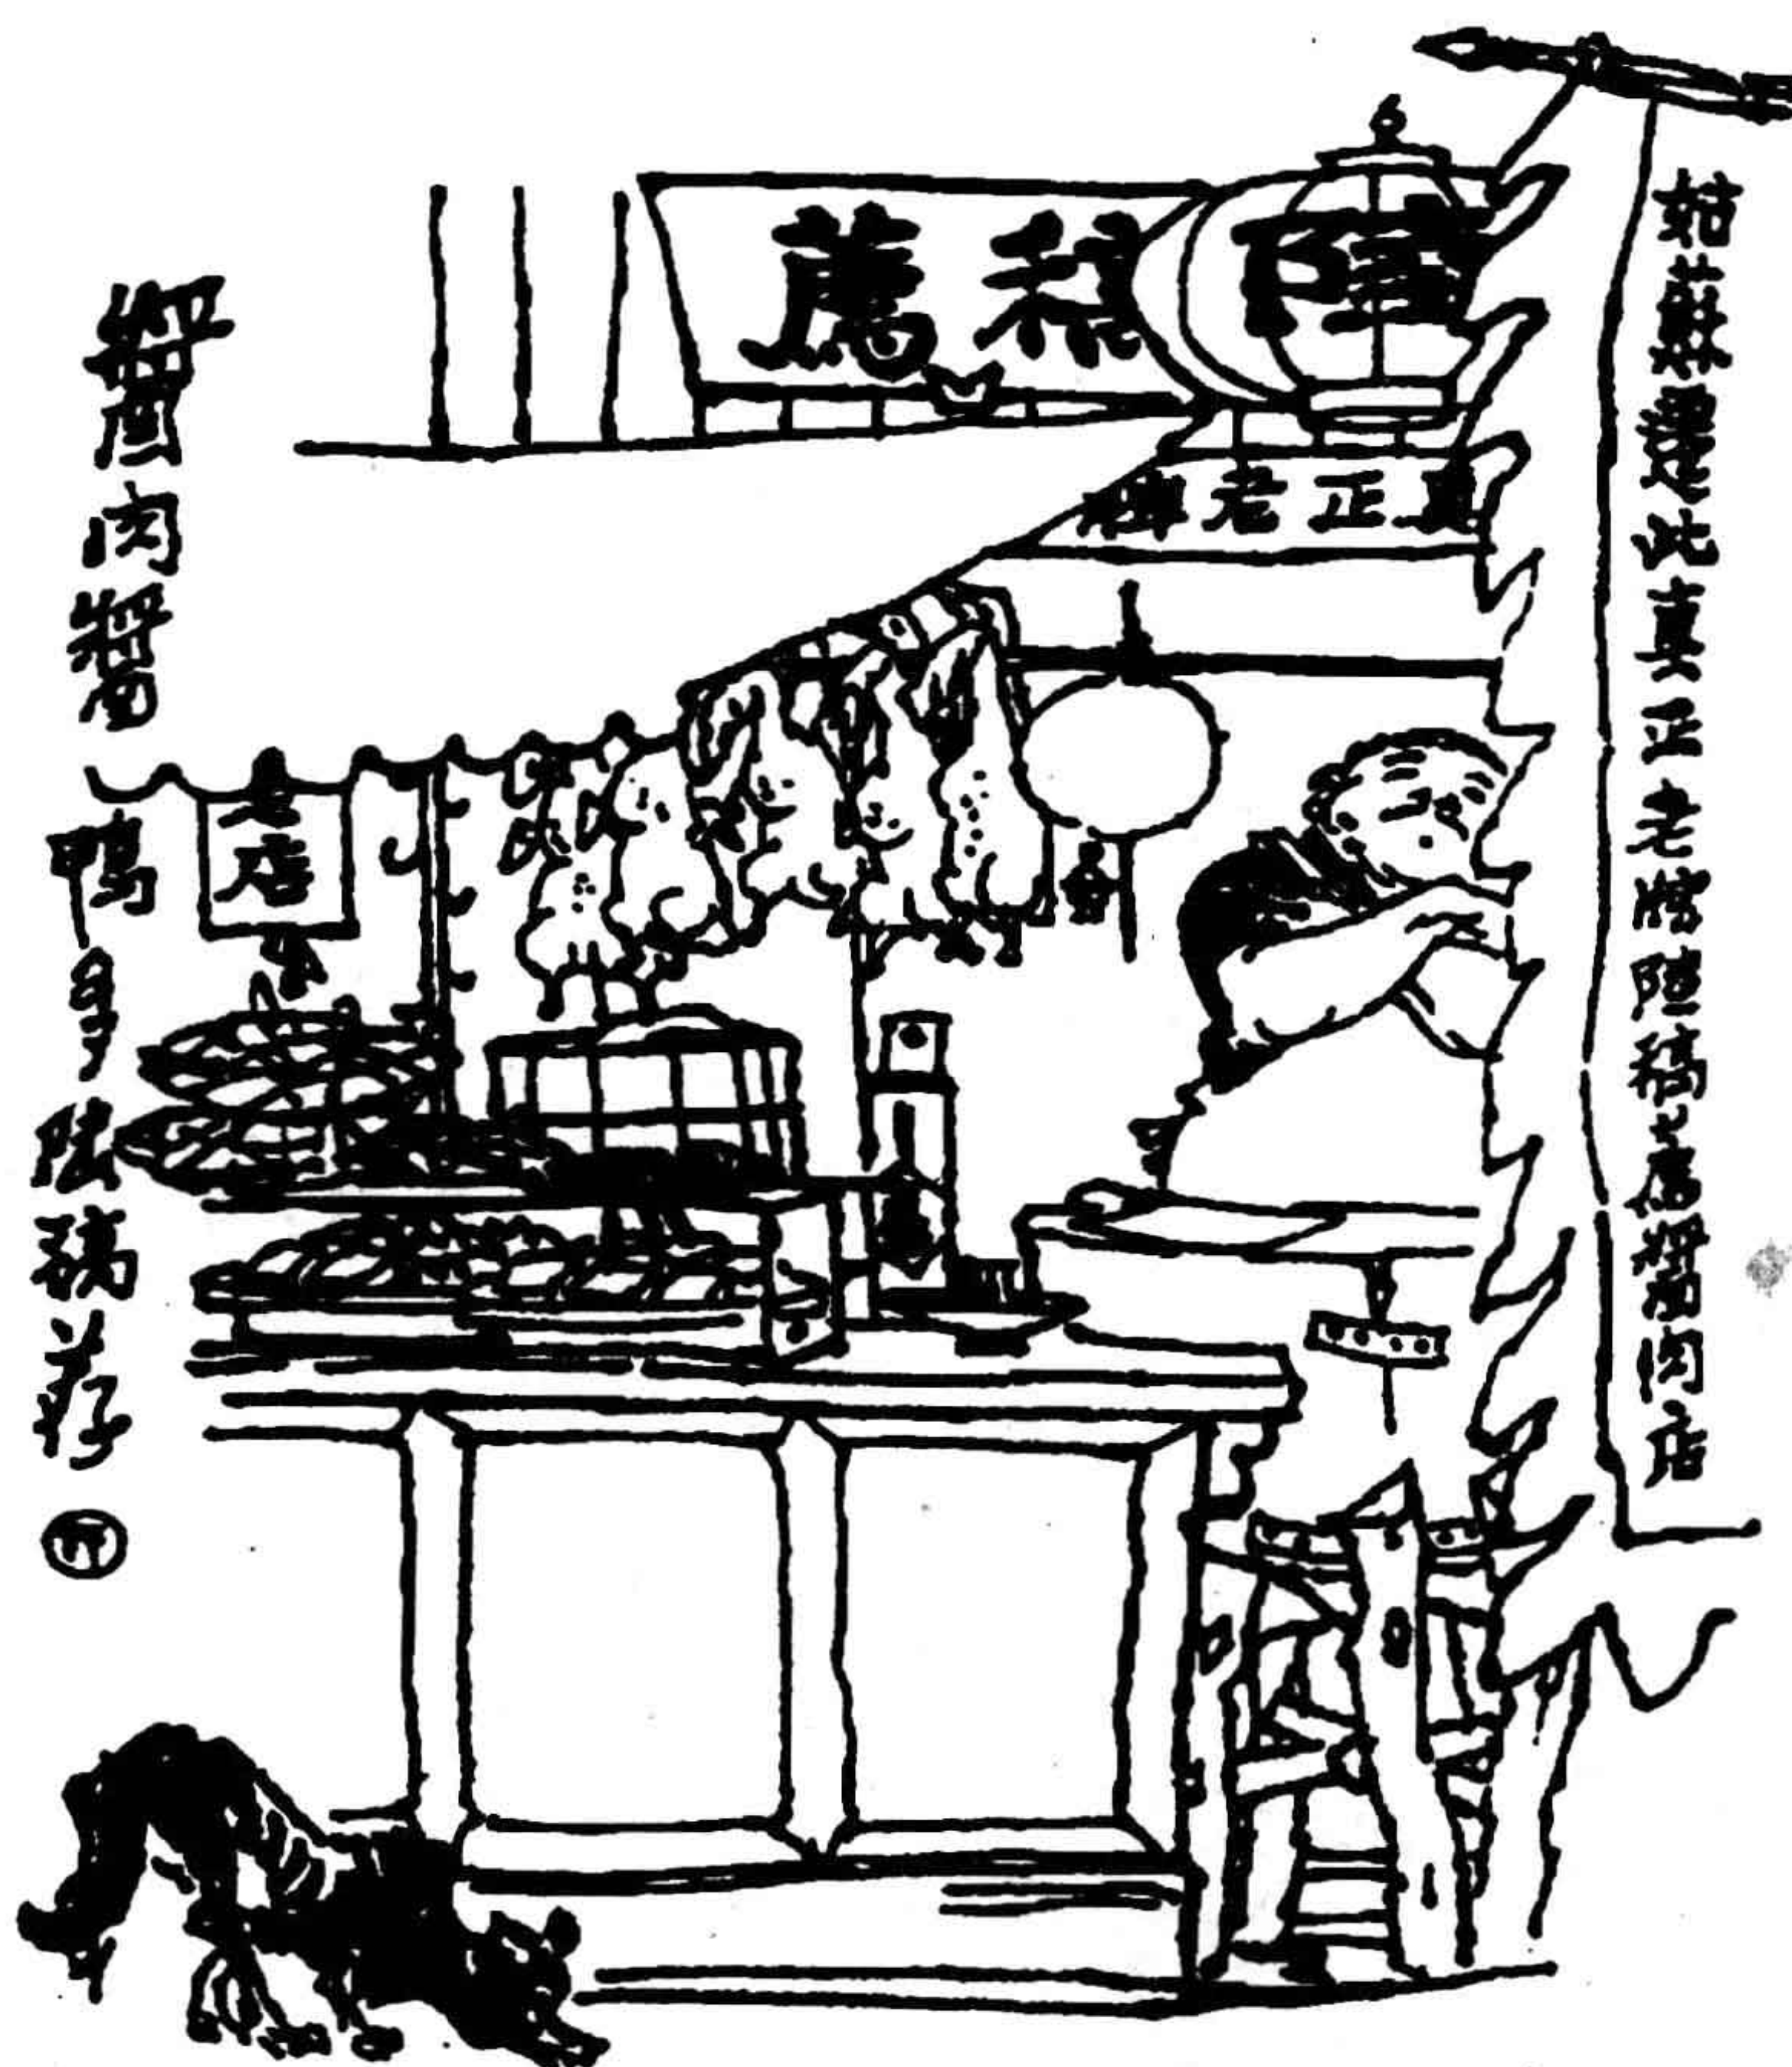 姑蘇遷此真正老牌陸稿薦醬肉店
陸稿薦
真正老牌
老店
醬肉醬鴨多陸稿荐